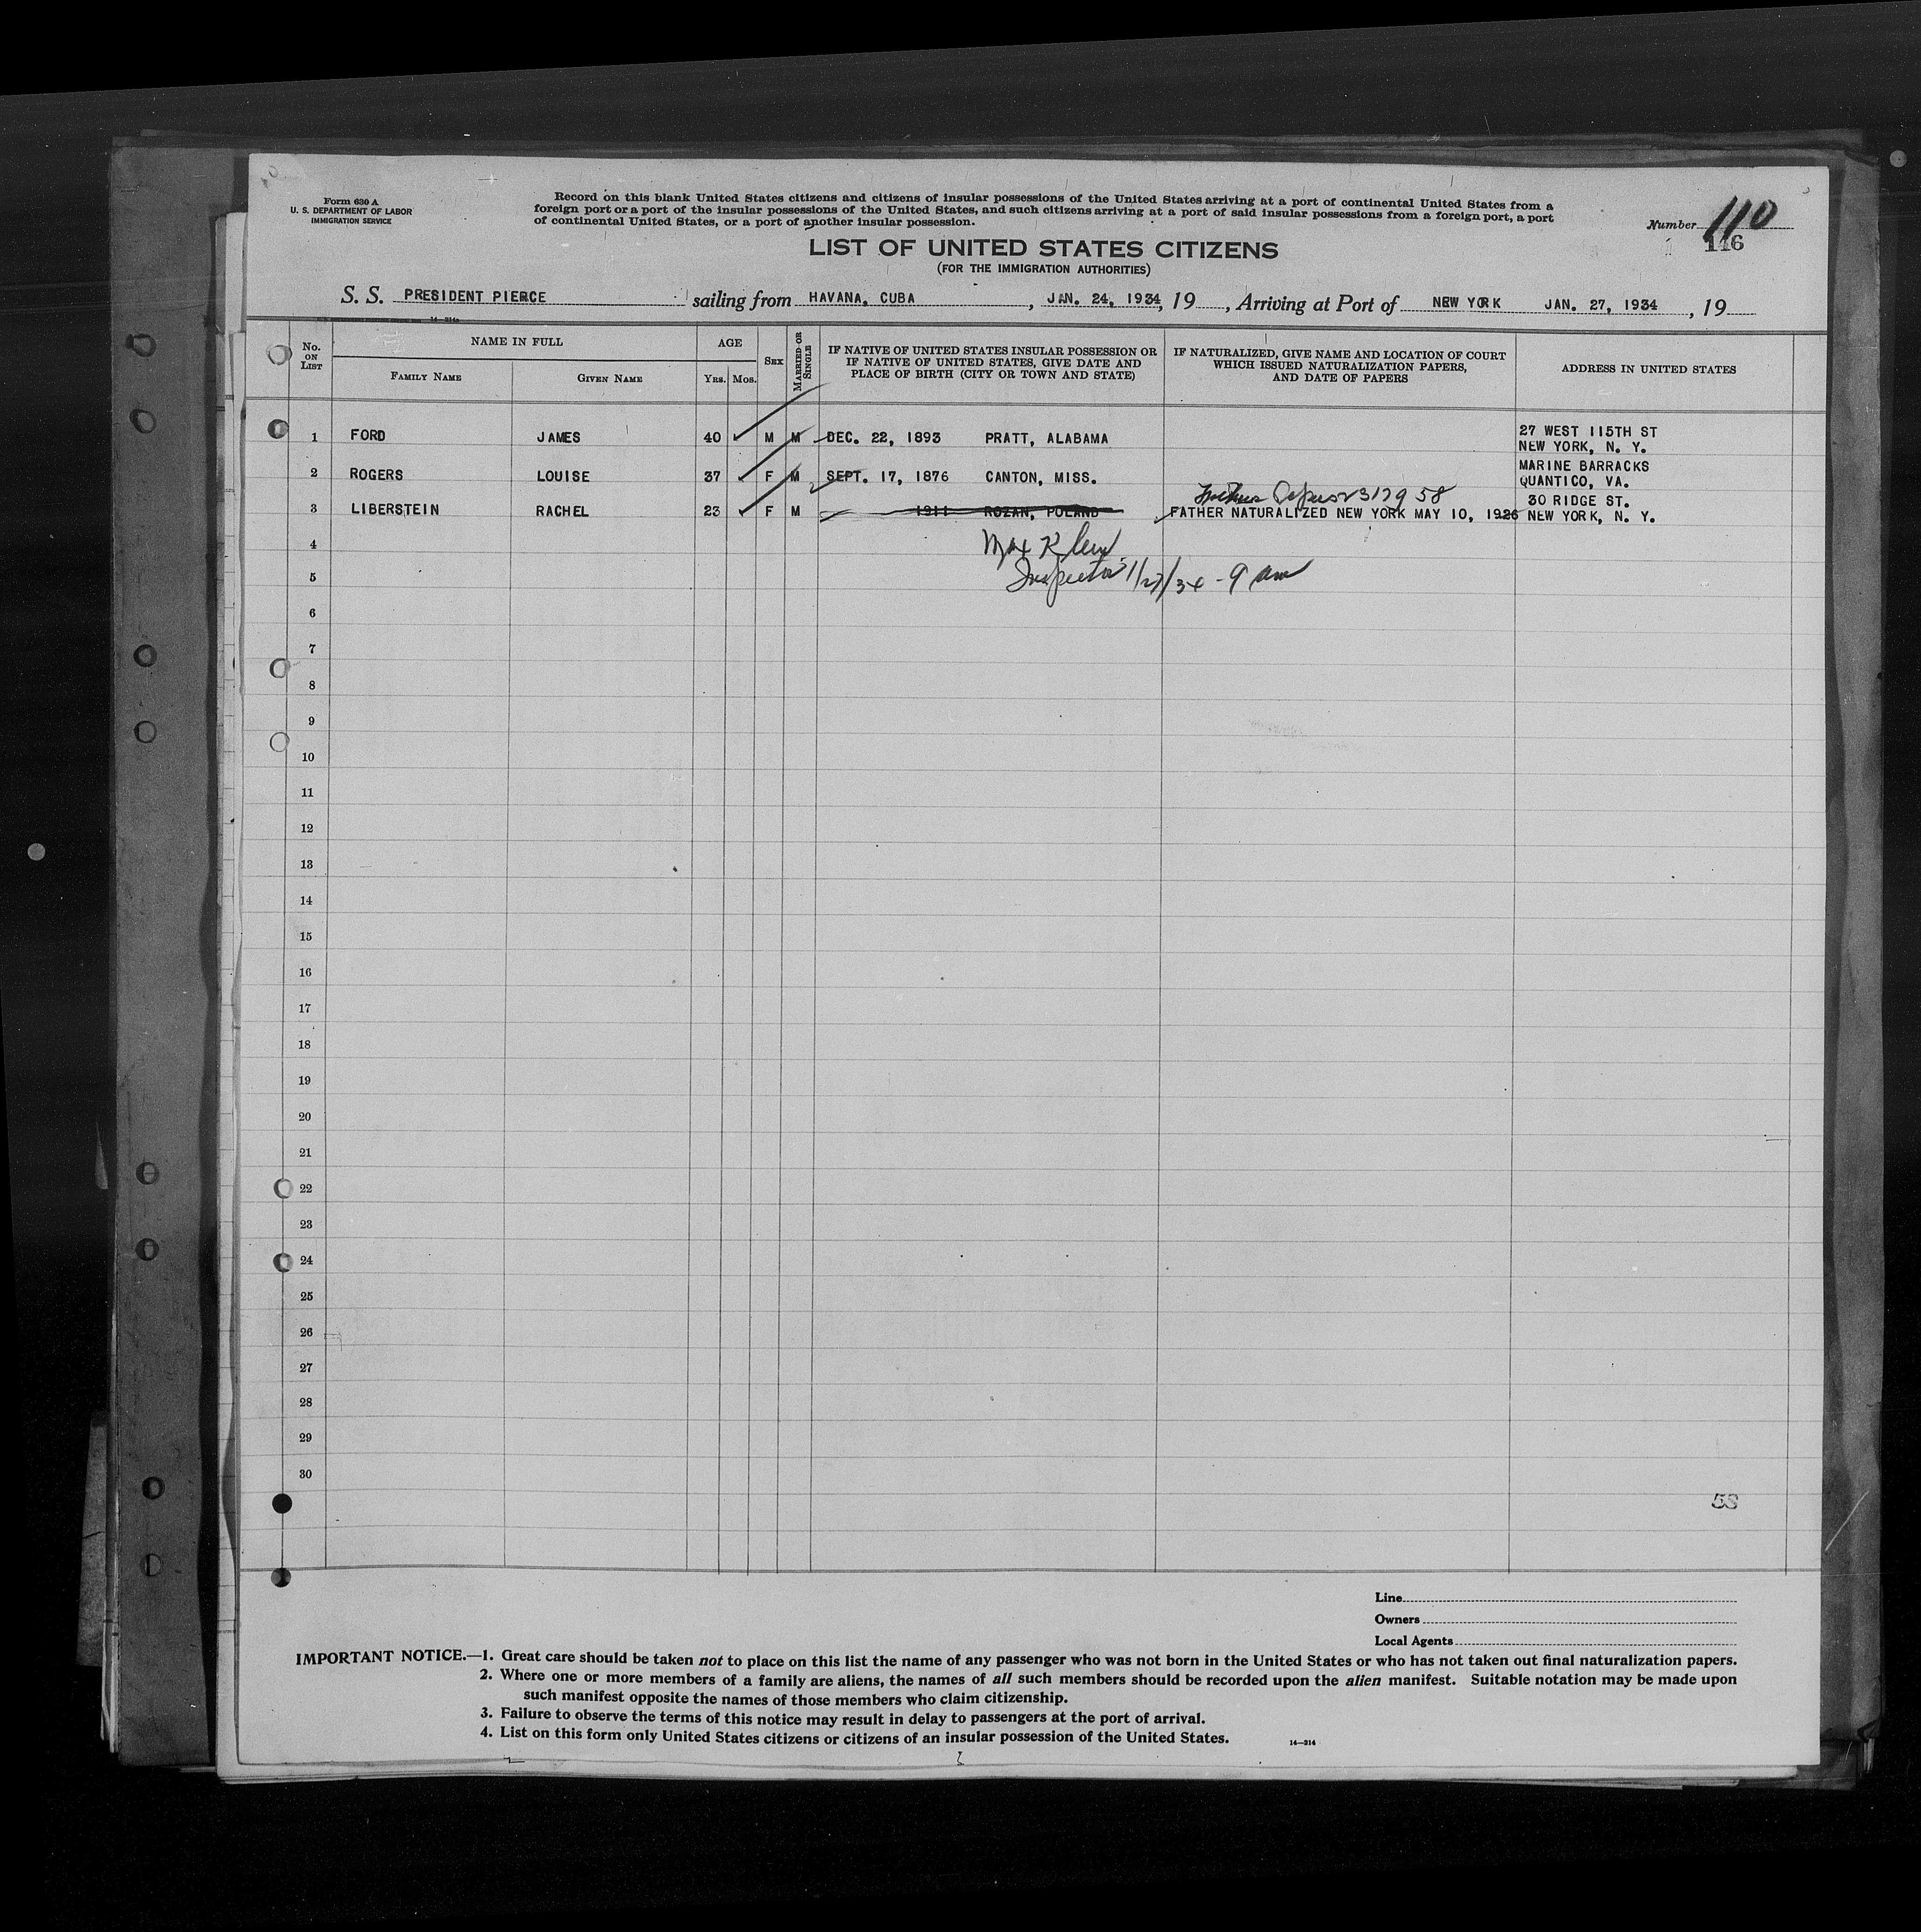 Form 630 A
U. S. DEPARTMENT OF LABOR
IMMIGRATION SERVICE
Record on this blank United States citizens and citizens of insular possessions of the United States arriving at a port of continental United States from a
foreign port or a port of the insular possessions of the United States, and such citizens arriving at a port of said insular possessions from a foreign port, a port
of continental United States, or a port of another insular possession.
Number 110
116
LIST OF UNITED STATES CITIZENS
(FOR THE IMMIGRATION AUTHORITIES)
S. S. PRESIDENT PIERCE sailing from HAVANA, CUBA , JAN. 24, 1934, 19 , Arriving at Port of NEW YORK JAN. 27, 1934 , 19
14—214a
No. ON LIST
NAME IN FULL
FAMILY NAME
GIVEN NAME
AGE
YRS. MOS.
SEX
MARRIED OR SINGLE
IF NATIVE OF UNITED STATES INSULAR POSSESSION OR
IF NATIVE OF UNITED STATES, GIVE DATE AND
PLACE OF BIRTH (CITY OR TOWN AND STATE)
IF NATURALIZED, GIVE NAME AND LOCATION OF COURT
WHICH ISSUED NATURALIZATION PAPERS,
AND DATE OF PAPERS
ADDRESS IN UNITED STATES
1 FORD JAMES 40 M M DEC. 22, 1893 PRATT, ALABAMA 27 WEST 115TH ST
NEW YORK, N. Y.
2 ROGERS LOUISE 37 F M SEPT. 17, 1876 CANTON, MISS. MARINE BARRACKS
QUANTICO, VA.
3 LIBERSTEIN RACHEL 23 F M 1911 ROZAN, POLAND FATHER NATURALIZED NEW YORK MAY 10, 1926 30 RIDGE ST.
NEW YORK, N. Y.
4 Max Klein
5 Inspector 1/27/34 - 9 am
6
7
8
9
10
11
12
13
14
15
16
17
18
19
20
21
22
23
24
25
26
27
28
29
30
58
Line
Owners
Local Agents
IMPORTANT NOTICE.—1. Great care should be taken not to place on this list the name of any passenger who was not born in the United States or who has not taken out final naturalization papers.
2. Where one or more members of a family are aliens, the names of all such members should be recorded upon the alien manifest. Suitable notation may be made upon
such manifest opposite the names of those members who claim citizenship.
3. Failure to observe the terms of this notice may result in delay to passengers at the port of arrival.
4. List on this form only United States citizens or citizens of an insular possession of the United States.
14—214